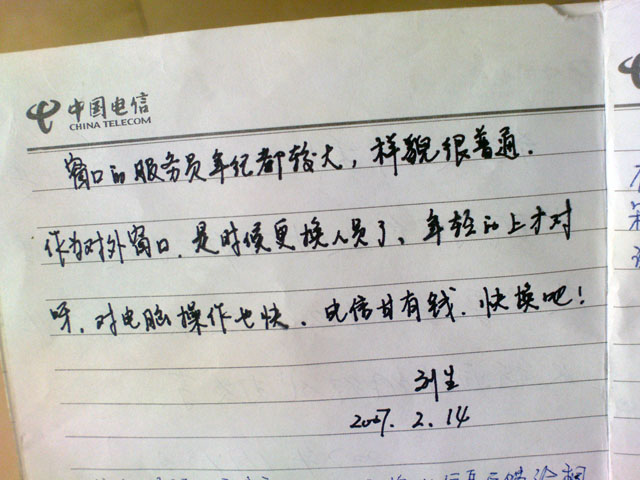 中国电信
CHINA TELECOM
窗口的服务员年纪都较大，样貌很普通.
作为对外窗口，是时候更换人员了、年轻的上才对
呀，对电脑操作也快、电信甘有钱.快换吧！
刘生
2007.2.14